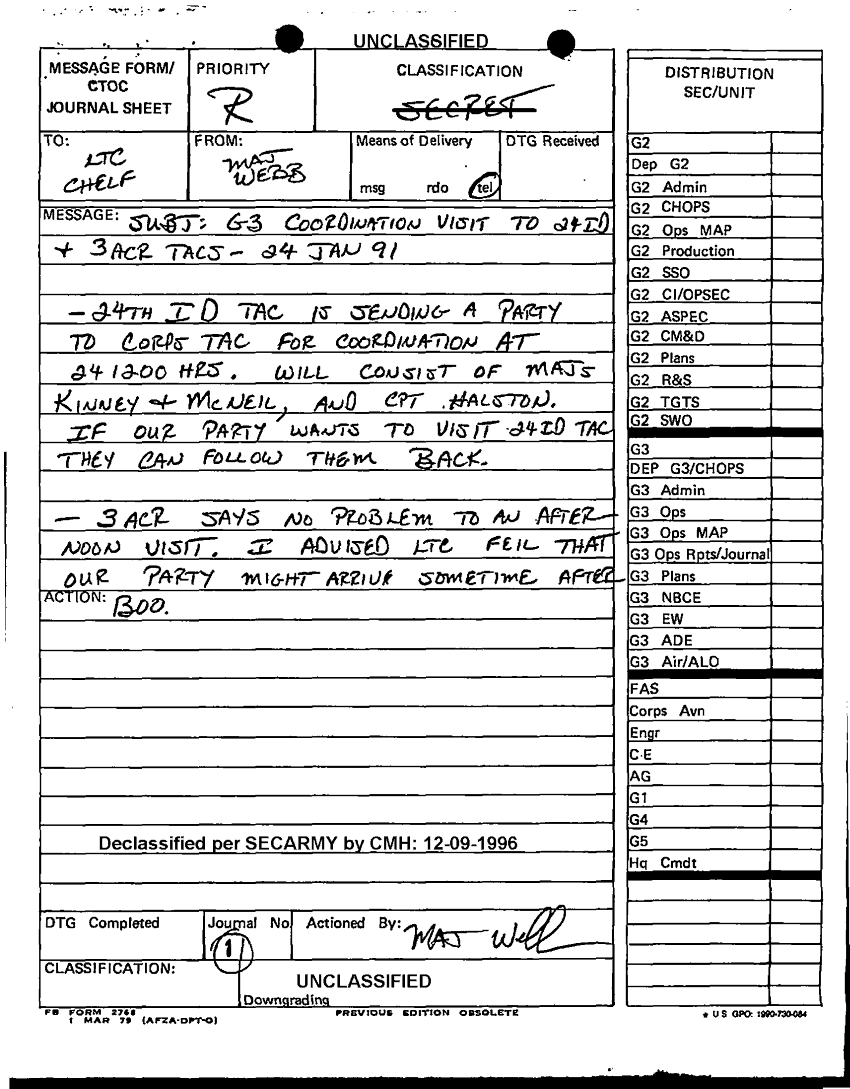 UNCLASSIFIED
MESSAGE FORM/
CTOC
JOURNAL SHEET
PRIORITY
R
CLASSIFICATION
SECRET
TO:
LTC
CHELF
FROM:
MAJ
WEBB
Means of Delivery
msg rdo tel
DTG Received
MESSAGE: SUBJ: G-3 COORDINATION VISIT TO 24 ID
+ 3 ACR TACS - 24 JAN 91
- 24TH ID TAC IS SENDING A PARTY
TO CORPS TAC FOR COORDINATION AT
24 1200 HRS. WILL CONSIST OF MAJS
KINNEY + MCNEIL, AND CPT HALSTON.
IF OUR PARTY WANTS TO VISIT 24 ID TAC
THEY CAN FOLLOW THEM BACK.
- 3 ACR SAYS NO PROBLEM TO AN AFTER-
NOON VISIT. I ADVISED LTC FEIL THAT
OUR PARTY MIGHT ARRIVE SOMETIME AFTER
ACTION: 1300.
Declassified per SECARMY by CMH: 12-09-1996
DTG Completed
Journal No
1
Actioned By: MAJ
CLASSIFICATION:
UNCLASSIFIED
Downgrading
FB FORM 2768
1 MAR 79 (AFZA-DPT-O)
PREVIOUS EDITION OBSOLETE
DISTRIBUTION
SEC/UNIT
G2
Dep G2
G2 Admin
G2 CHOPS
G2 Ops MAP
G2 Production
G2 SSO
G2 CI/OPSEC
G2 ASPEC
G2 CM&D
G2 Plans
G2 R&S
G2 TGTS
G2 SWO
G3
DEP G3/CHOPS
G3 Admin
G3 Ops
G3 Ops MAP
G3 Ops Rpts/Journal
G3 Plans
G3 NBCE
G3 EW
G3 ADE
G3 Air/ALO
FAS
Corps Avn
Engr
C-E
AG
G1
G4
G5
Hq Cmdt
* U S GPO: 1990-730-084